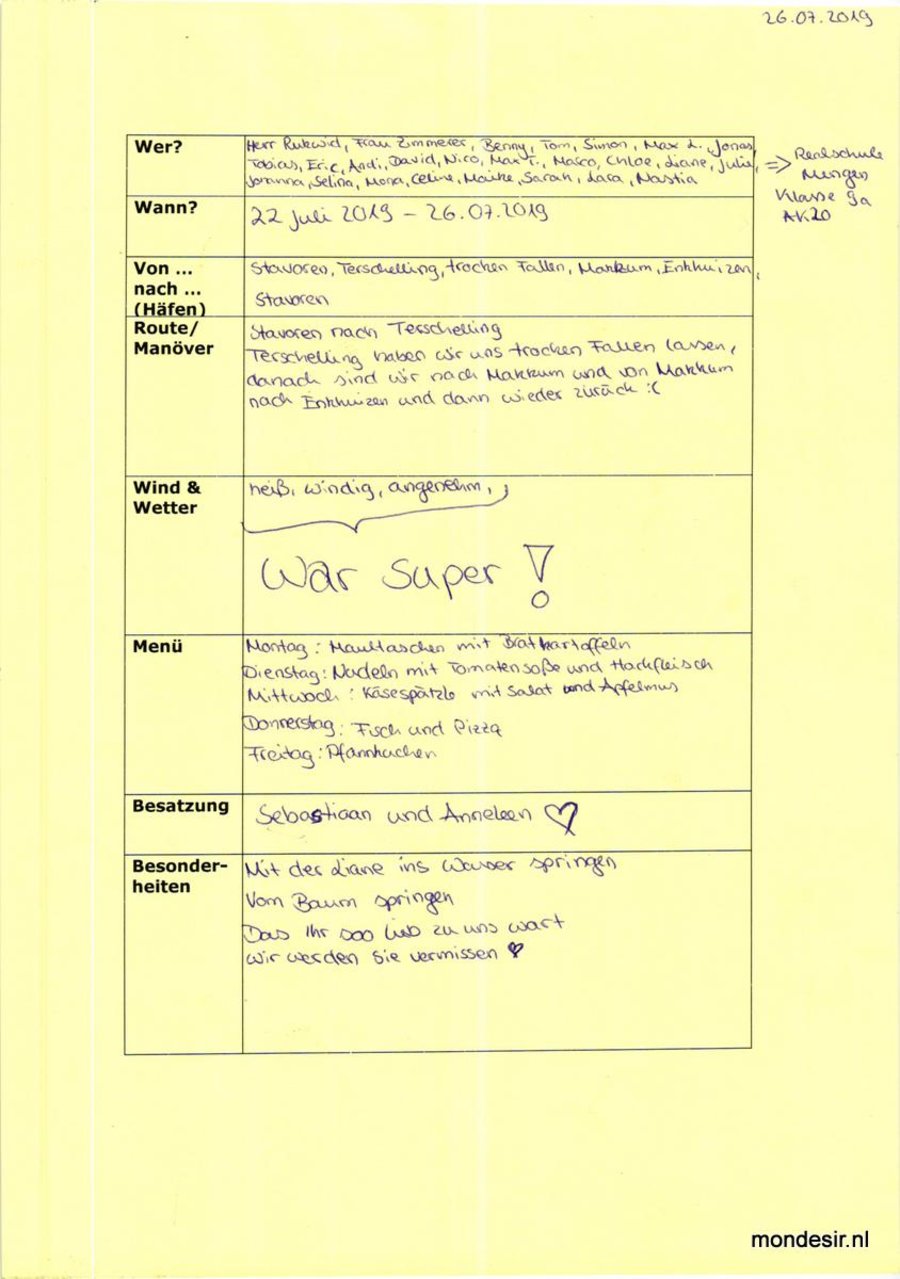 26.07.2019
Wer?
Herr Rukwid, Frau Zimmerer, Benny, Tom, Simon, Max L., Jonas,
Tobias, Eric, Andi, David, Nico, Max T., Marco, Chloe, Liane, Julie,
Joranna, Selina, Mona, Celine, Maike, Sarah, Lara, Nastia
=> Realschule
Mengen
Klasse 9a
AK20
Wann?
22 Juli 2019 – 26.07.2019
Von ...
nach ...
(Häfen)
Stavoren, Terschelling, trocken Fallen, Makkum, Enkhuizen,
Stavoren
Route/
Manöver
Stavoren nach Terschelling
Terschelling haben wir uns trocken Fallen lassen,
danach sind wir nach Makkum und von Makkum
nach Enkhuizen und dann wieder zurück :(
Wind &
Wetter
heiß, windig, angenehm,
War super!
Menü
Montag: Maultaschen mit Bratkartoffeln
Dienstag: Nudeln mit Tomatensoße und Hackfleisch
Mittwoch: Käsespätzle mit Salat und Apfelmus
Donnerstag: Fisch und Pizza
Freitag: Pfannkuchen
Besatzung
Sebastiaan und Anneleen ♡
Besonder-
heiten
Mit der Liane ins Wasser springen
Vom Baum springen
Das Ihr soo lieb zu uns wart
Wir werden Sie vermissen ♡
mondesir.nl